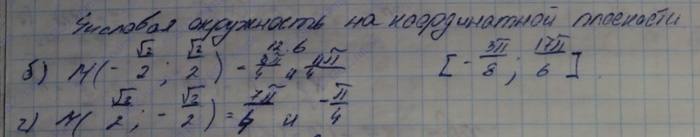 Числовая окружность на координатной плоскости
12.6
б) М(-√2/2; √2/2) - 3π/4 и 11π/4 [-3π/8; 17π/6]
г) М(√2/2; -√2/2) = 7π/4 и -π/4